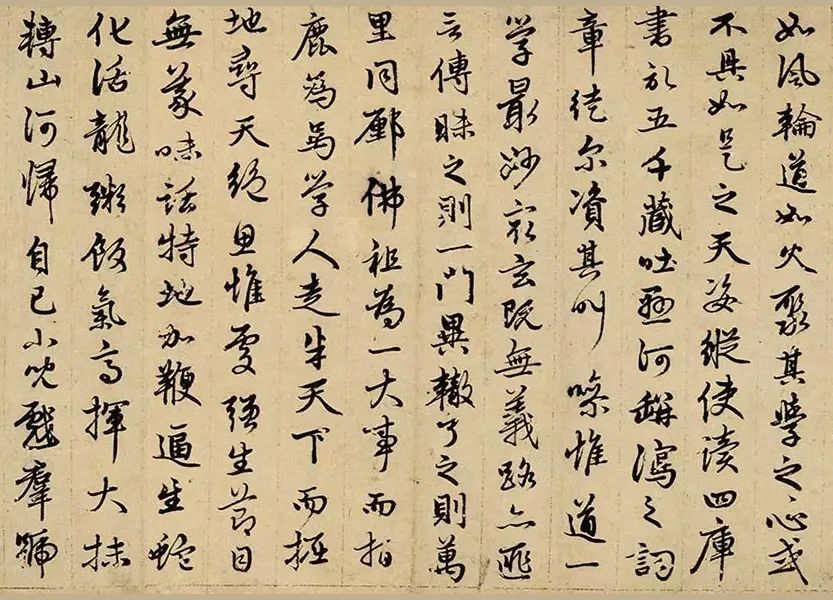 如風輪道如火聚其學之心或
不具如是之天姿縱使读四庫
書於五千藏吐懸河辯瀉之詞
章徒尔凟其叫噪惟道一
学最妙玄既無義路亦匪
言傳昧之則一門異轍了之則萬
里同鄽佛祖為一大事而指
鹿為馬学人走半天下而抵
地尋天絕思惟處强生節目
無義味話特地加鞭逼生蛇
化活龍粥飯氣高揮大抹
轉山河歸自己小羣